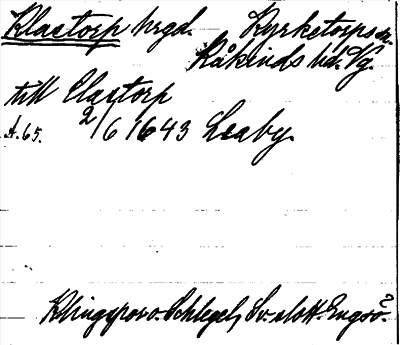 Klastorp hrgd. Kyrketorps sn.
Kåkinds hd. Vg.
till Clastorp
A. 65. 2/6 1643 Leaby.
Klingspor o. Schlegel, Sv. slott. Engsö?